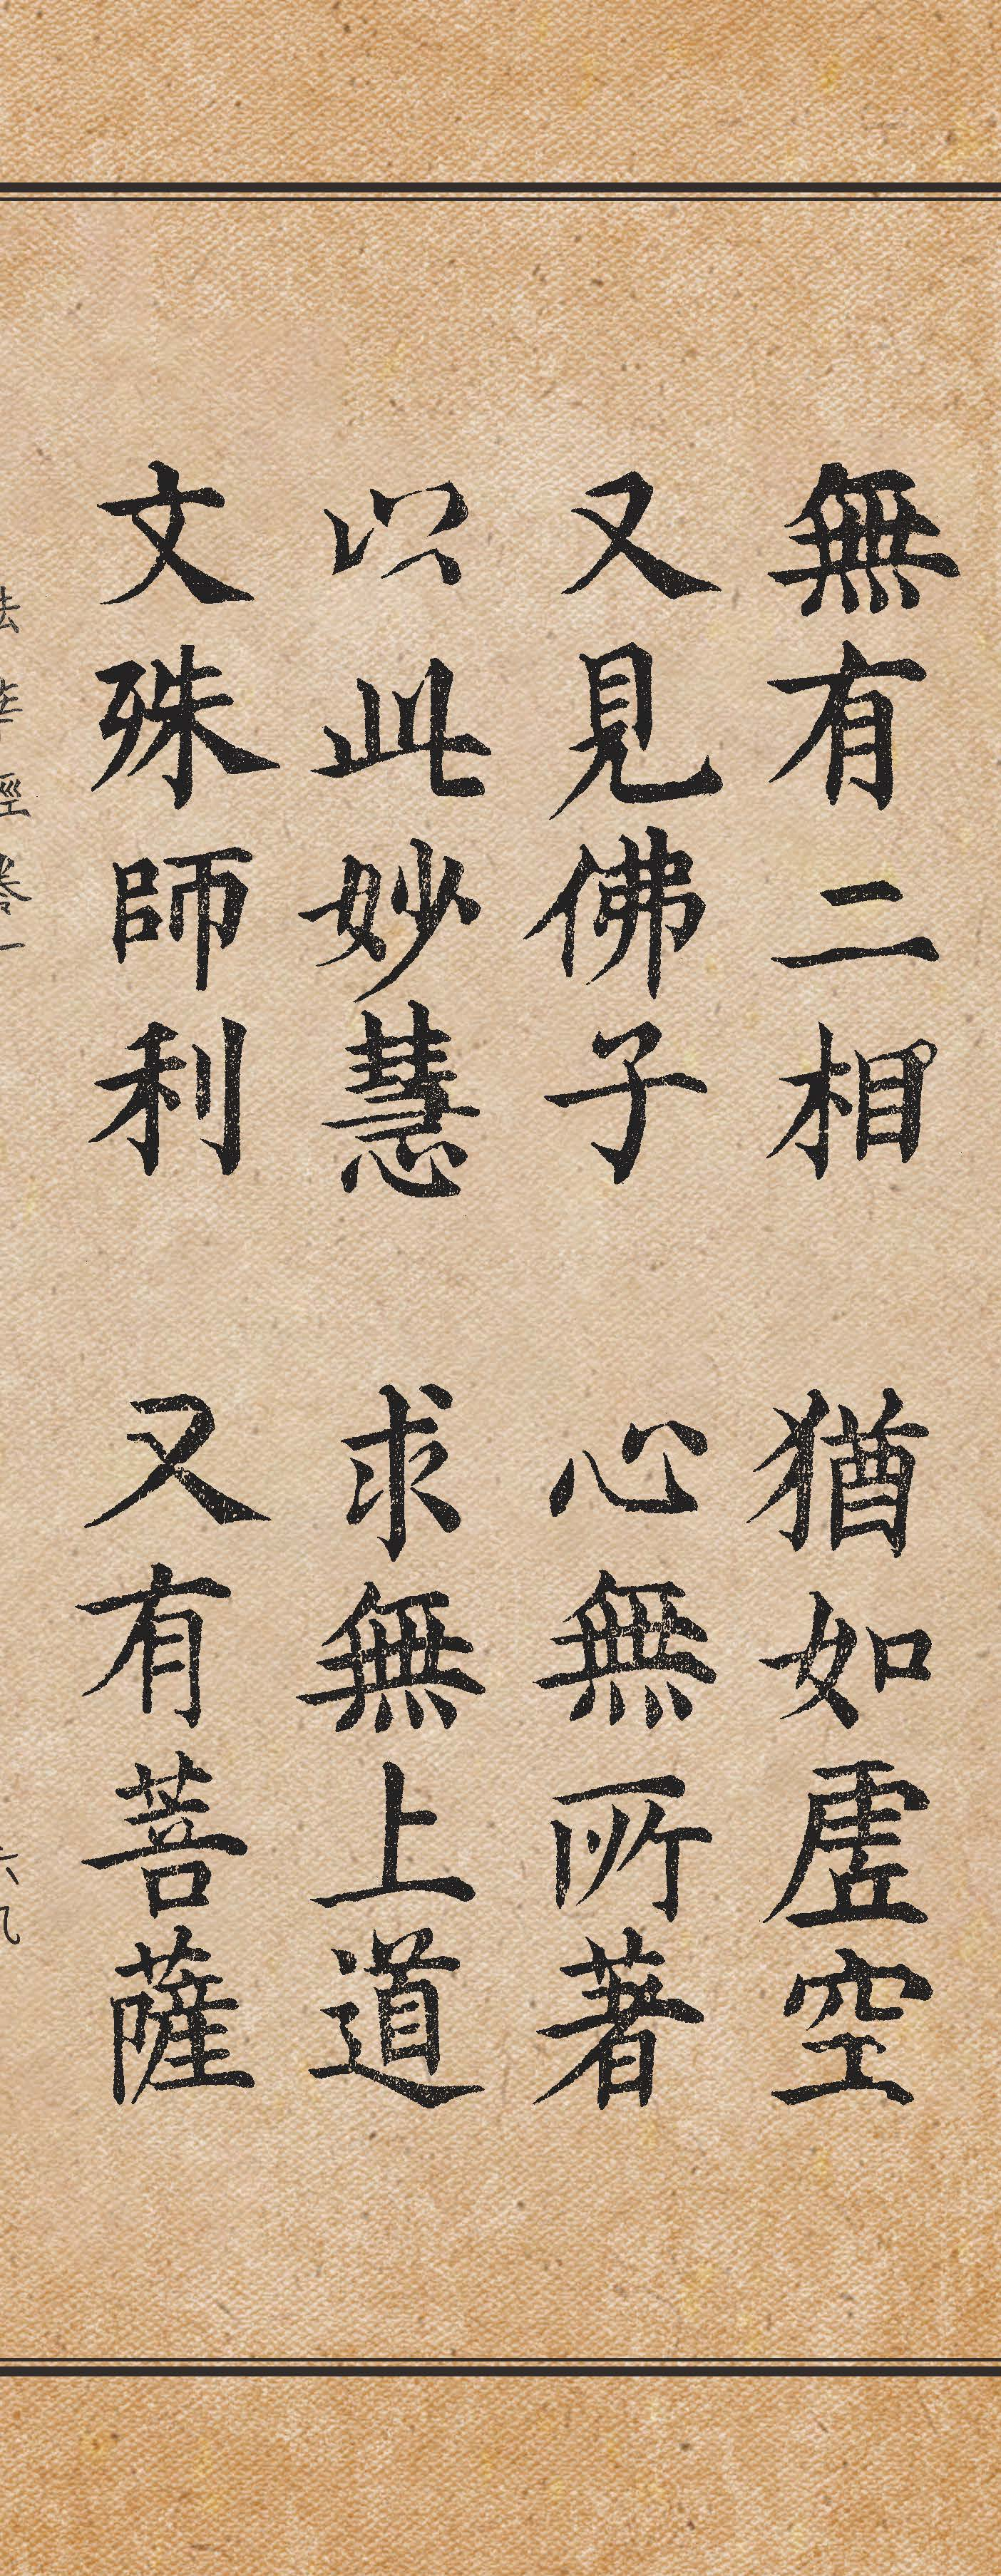 無有二相 猶如虛空
又見佛子 心無所著
以此妙慧 求無上道
文殊師利 又有菩薩
法華經卷一 六九